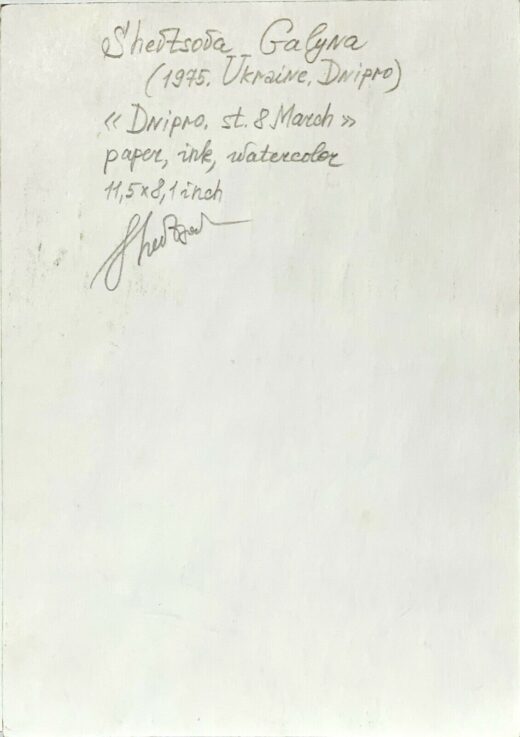 Shevtsova Galyna
(1975. Ukraine, Dnipro)
« Dnipro. st. 8 March »
paper, ink, watercolor
11,5×8,1 inch